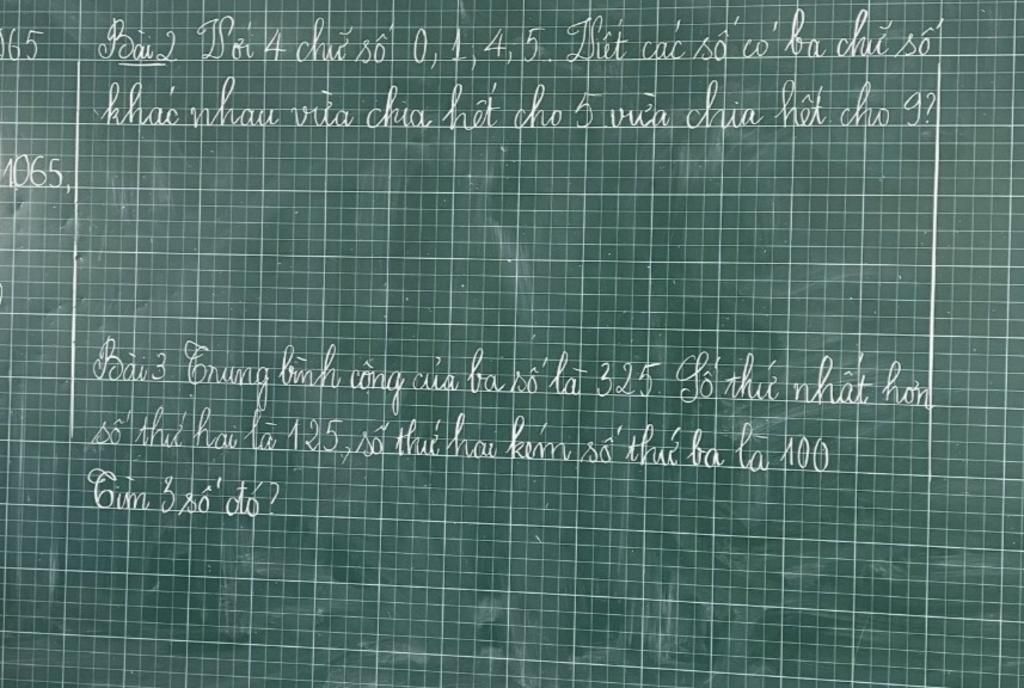 065
Bài 2 Với 4 chữ số 0, 1, 4, 5. Viết các số có ba chữ số
khác nhau vừa chia hết cho 5 vừa chia hết cho 9?
1065,
Bài 3 Trung bình cộng của ba số là 325. Số thứ nhất hơn
số thứ hai là 125, số thứ hai kém số thứ ba là 100
Tìm 3 số đó?